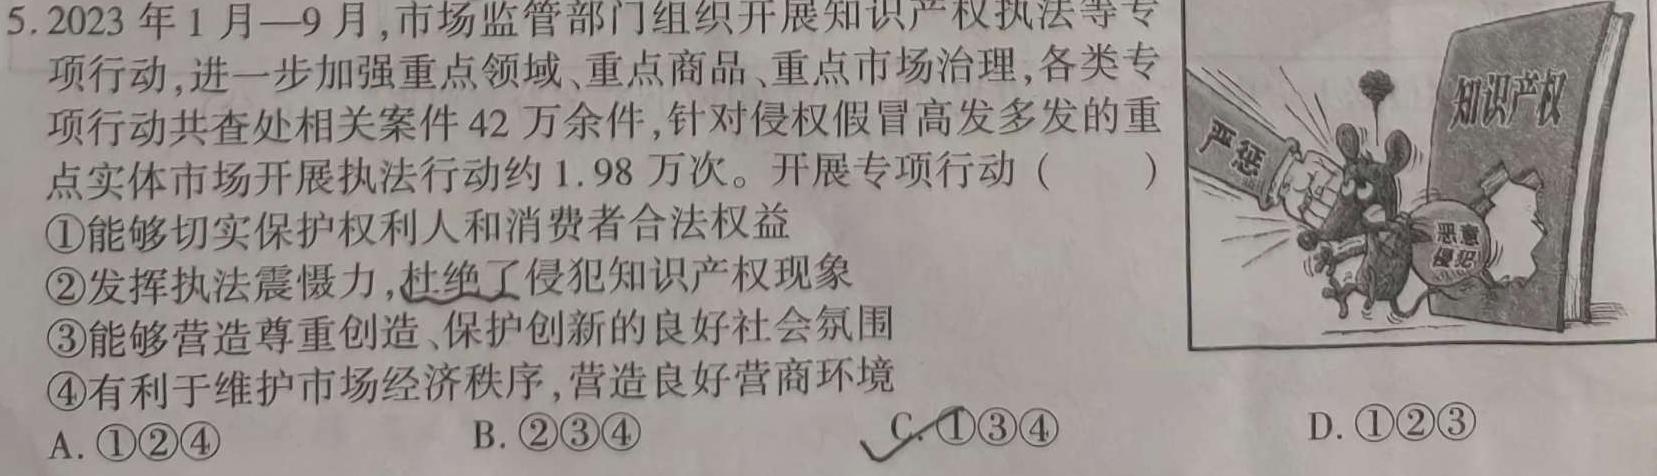 5. 2023 年 1 月—9 月,市场监管部门组织开展知识产权执法等专
项行动,进一步加强重点领域、重点商品、重点市场治理,各类专
项行动共查处相关案件 42 万余件,针对侵权假冒高发多发的重
点实体市场开展执法行动约 1.98 万次。开展专项行动(　　)
①能够切实保护权利人和消费者合法权益
②发挥执法震慑力,杜绝了侵犯知识产权现象
③能够营造尊重创造、保护创新的良好社会氛围
④有利于维护市场经济秩序,营造良好营商环境
A. ①②④ B. ②③④ C. ①③④ D. ①②③
知识产权
严惩
恶意
侵犯